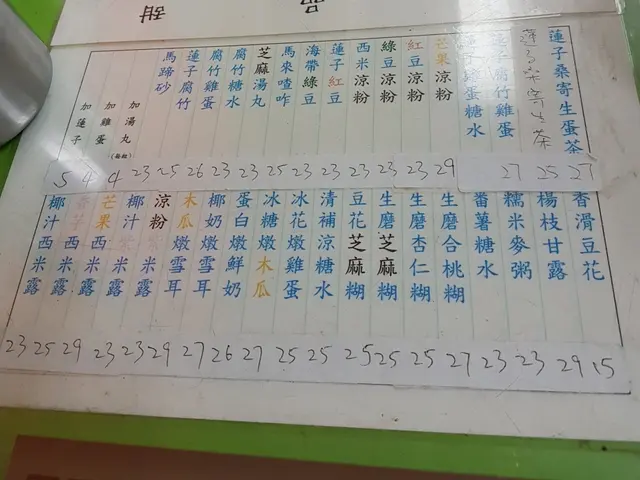 甜品
蓮子桑寄生蛋茶
蓮子桑寄生茶
腐竹雞蛋
雞蛋糖水
芒果涼粉
紅豆涼粉
綠豆涼粉
西米涼粉
蓮子紅豆
海帶綠豆
馬來喳咋
芝麻湯丸
腐竹糖水
腐竹雞蛋
蓮子腐竹
馬蹄砂
加湯丸
加雞蛋
加蓮子
27 25 27 29 23 23 23 23 23 25 23 23 26 25 23 4 4 5
香滑豆花
楊枝甘露
糯米麥粥
番薯糖水
生磨合桃糊
生磨杏仁糊
生磨芝麻糊
豆花芝麻糊
清補涼糖水
冰花燉雞蛋
冰糖燉木瓜
蛋白燉鮮奶
椰奶燉雪耳
木瓜燉雪耳
涼粉西米露
椰汁西米露
芒果西米露
西米露
椰汁西米露
15 29 23 23 27 25 25 25 25 25 27 26 27 29 23 23 29 25 23